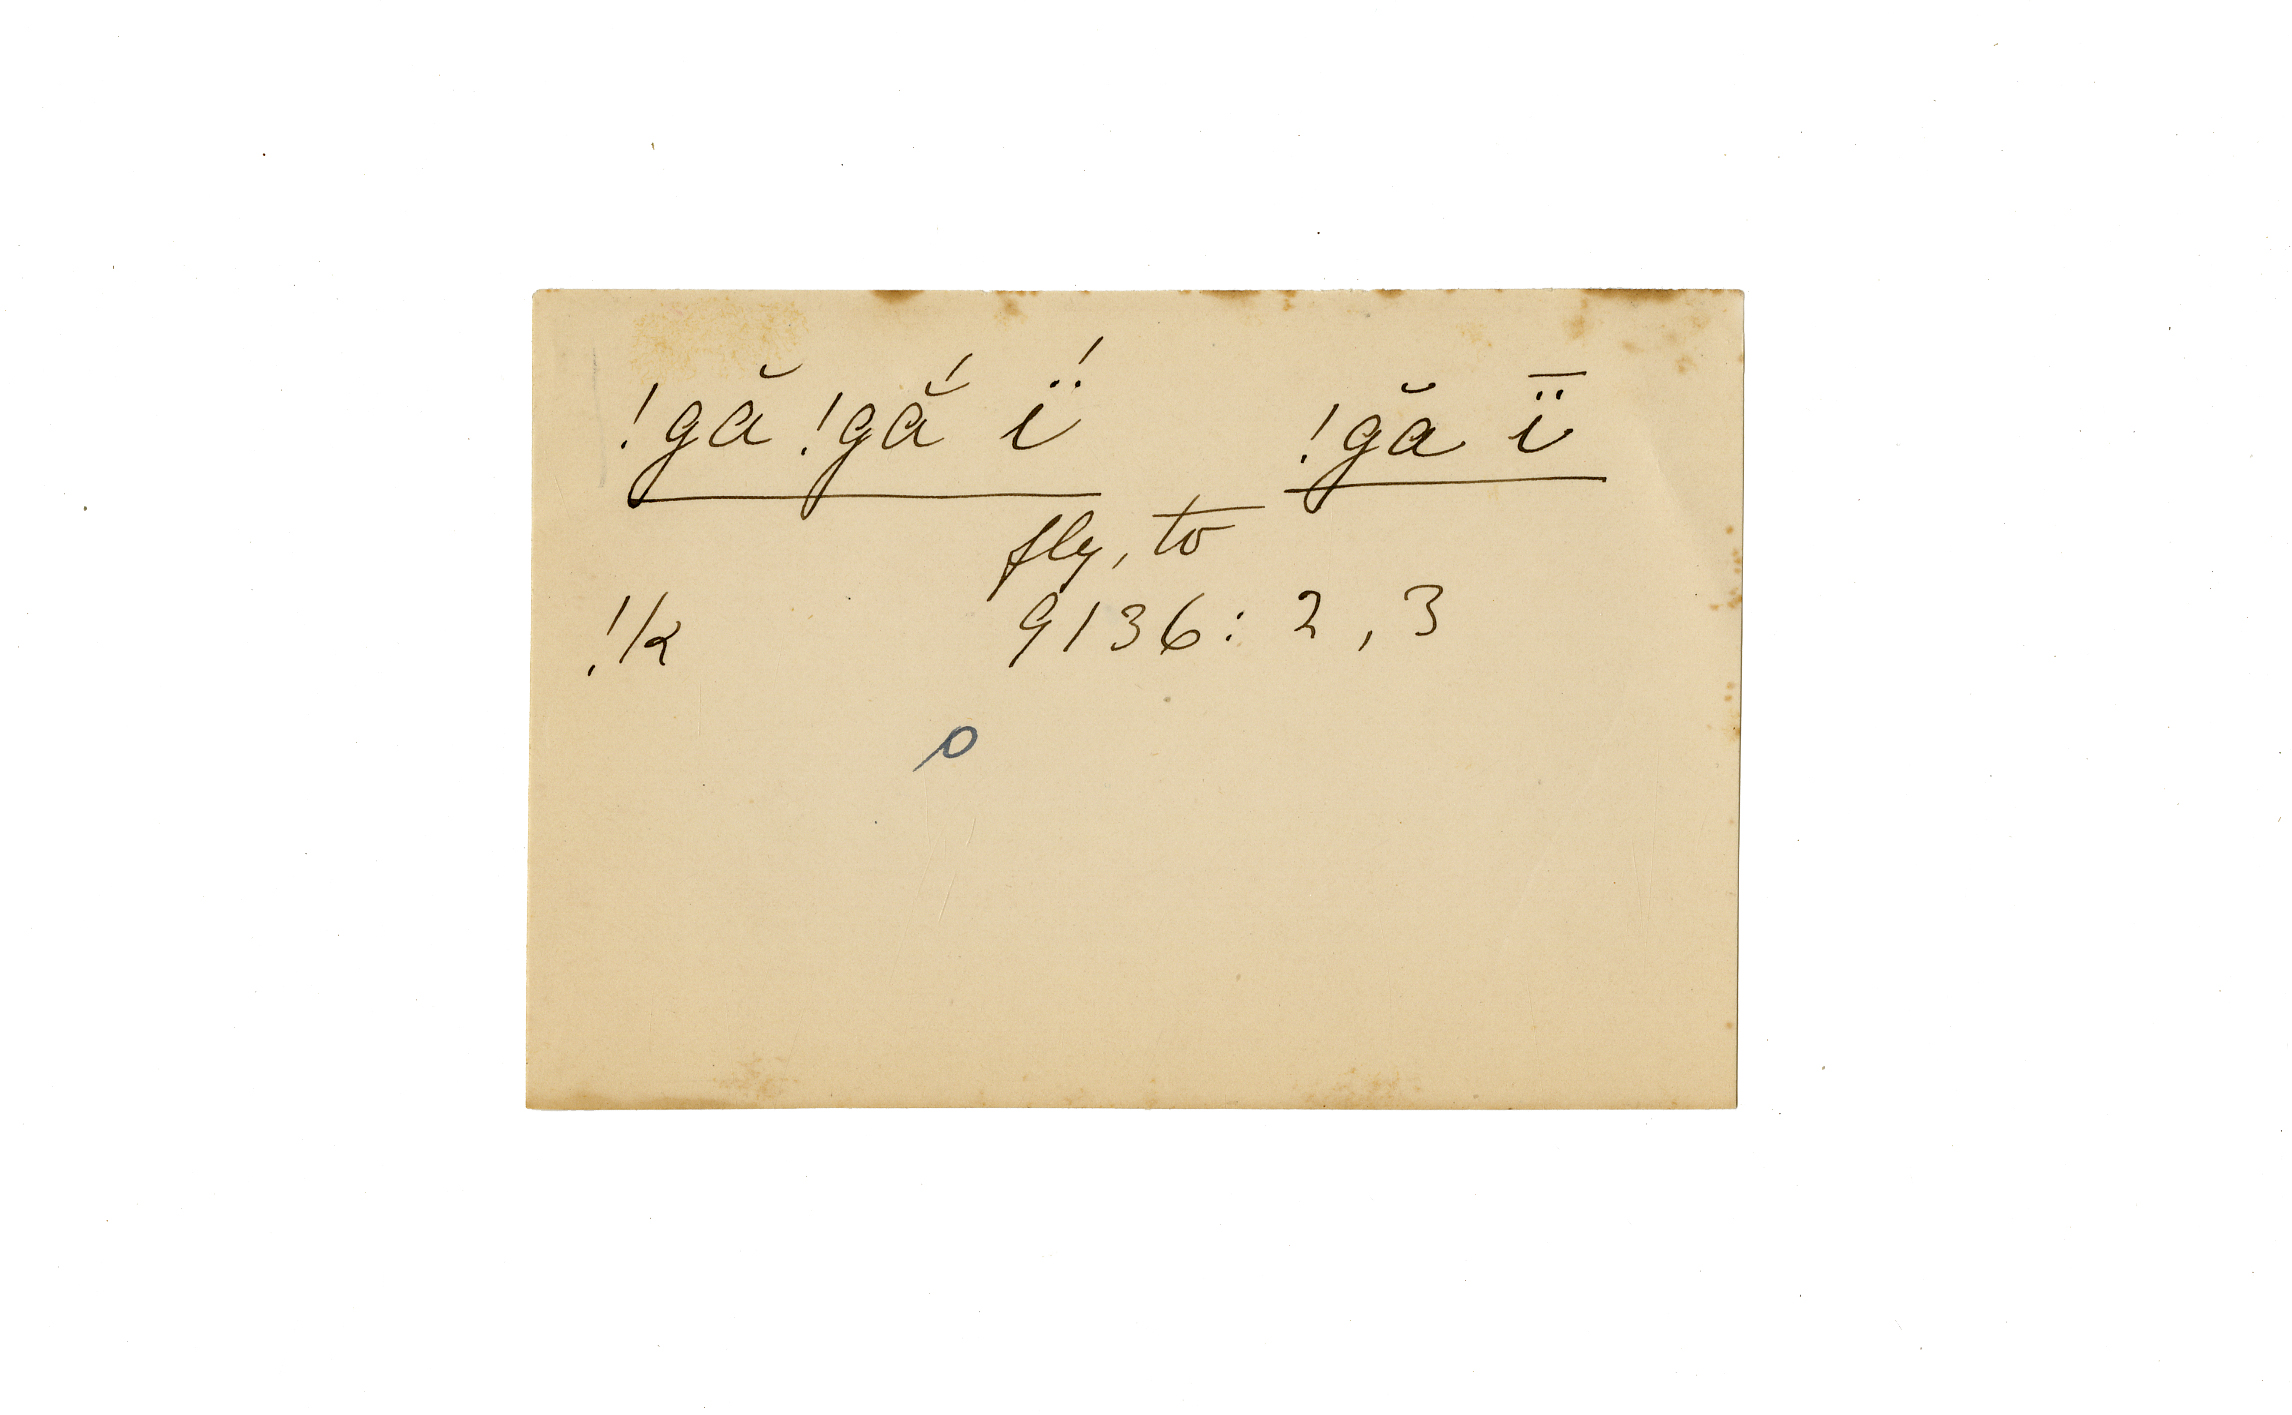 !gă !gắ ḯ !gă ï̄
fly, to
!k 9136: 2, 3